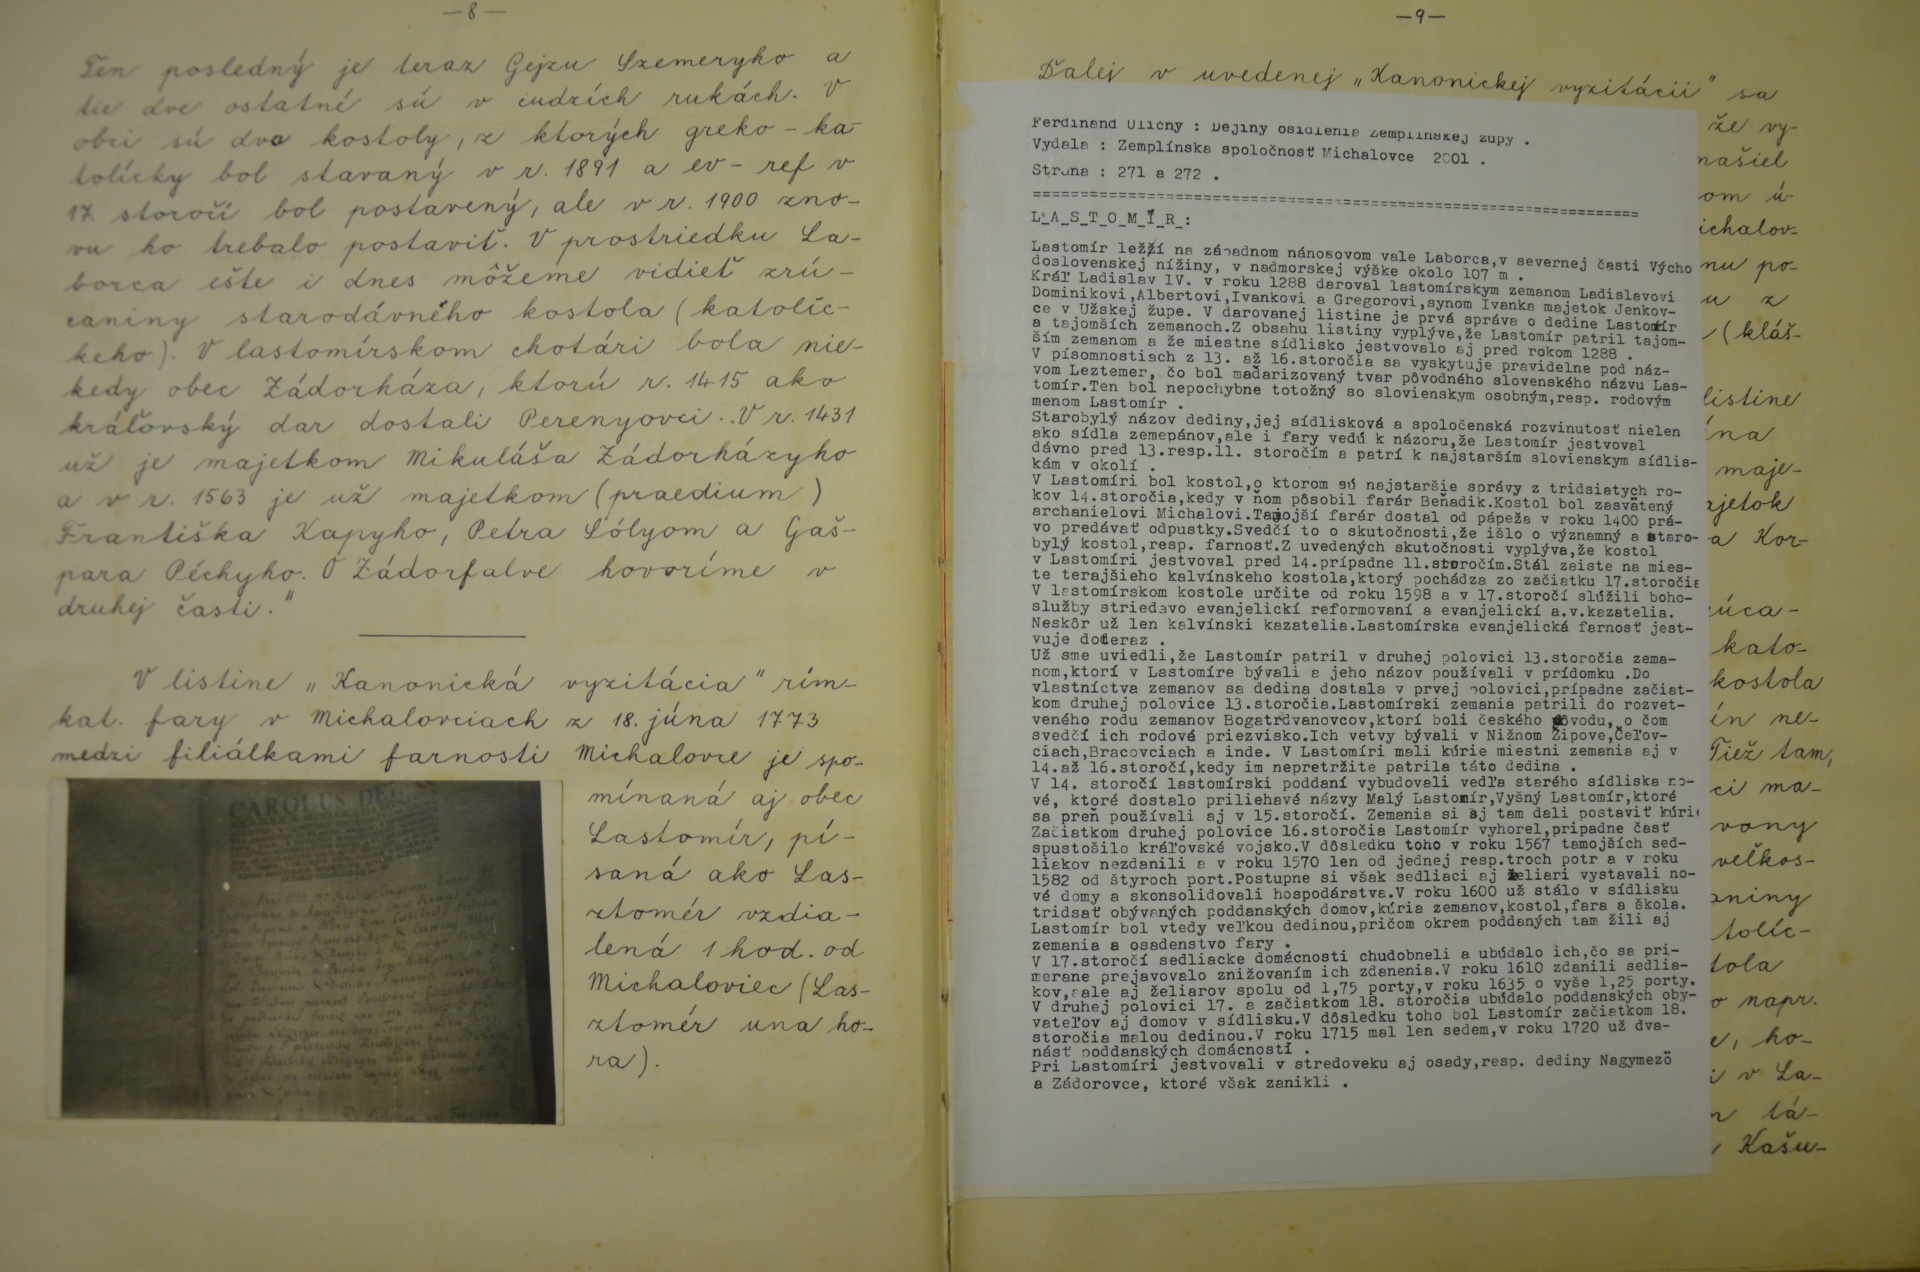 —8—
Ten posledný je teraz Gejzu Szemeryho a
tie dve ostatné sú v cudzích rukách. V
obci sú dva kostoly, z ktorých greko-ka-
tolícky bol stavaný v r. 1891 a ev-ref v
17. storočí bol postavený, ale v r. 1900 zno-
vu ho trebalo postaviť. V prostriedku La-
borca ešte i dnes môžeme vidieť zrú-
caniny starodávného kostola (katolíc-
keho). V lastomírskom chotári bola nie-
kedy obec Zádorháza, ktorú r. 1415 ako
kráľovský dar dostali Perenyovci. V r. 1431
už je majetkom Mikuláša Zádorházyho
a v r. 1563 je už majetkom (praedium)
Františka Kapyho, Petra Sólyom a Gaš-
para Péchyho. O Zádorfalve hovoríme v
druhej časti."
V listine „Kanonická vyzitácia" rím-
kat. fary v Michalovciach z 18. júna 1773
medzi filiálkami farnosti Michalovce je spo-
mínaná aj obec
Lastomír, pí-
saná ako Las-
ztomér vzdia-
lená 1 hod. od
Michaloviec (Las-
ztomér una ho-
ra).
CAROLUS
—9—
Ďalej v uvedenej „Kanonickej vyzitácii" sa
že vy-
našiel
om ú-
ichalov-
nu po-
u z
(kláš-
listine
ína
maje-
ajetok
a Kor-
úca-
kato-
kostola
ín ne-
Tiež tam,
ci ma-
vany
veľkos-
aniny
tolíc-
tola
o napr.
e, ho-
i v La-
n tá-
Kašu-
Ferdinand Uličný : Dejiny osídlenia Zemplínskej župy .
Vydala : Zemplínska spoločnosť Michalovce 2001 .
Strana : 271 a 272 .
L_A_S_T_O_M_Í_R_:
Lastomír ležží na západnom nánosovom vale Laborca,v severnej časti Výcho
doslovenskej nížiny, v nadmorskej výške okolo 107 m .
Kráľ Ladislav IV. v roku 1288 daroval lastomírskym zemanom Ladislavovi
Dominikovi,Albertovi,Ivankovi a Gregorovi,synom Ivanka majetok Jenkov-
ce v Užskej župe. V darovanej listine je prvá správa o dedine Lastomír
a tajomších zemanoch.Z obsahu listiny vyplýva,že Lastomír patril tajom-
ším zemanom a že miestne sídlisko jestvovalo aj pred rokom 1288 .
V písomnostiach z 13. až 16.storočia sa vyskytuje pravidelne pod náz-
vom Leztemer, čo bol maďarizovaný tvar pôvodného slovenského názvu Las-
tomír.Ten bol nepochybne totožný so slovienskym osobným,resp. rodovým
menom Lastomír .
Starobylý názov dediny,jej sídlisková a spoločenská rozvinutosť nielen
ako sídla zemepánov,ale i fary vedú k názoru,že Lastomír jestvoval
dávno pred 13.resp.11. storočím a patrí k najstarším slovienskym sídlis-
kám v okolí .
V Lastomíri bol kostol,o ktorom sú najstaršie správy z tridsiatych ro-
kov 14.storočia,kedy v ňom pôsobil farár Beňadik.Kostol bol zasvätený
archanielovi Michalovi.Tamojší farár dostal od pápeža v roku 1400 prá-
vo predávať odpustky.Svedčí to o skutočnosti,že išlo o významný a staro-
bylý kostol,resp. farnosť.Z uvedených skutočnosti vyplýva,že kostol
v Lastomíri jestvoval pred 14.prípadne 11.storočím.Stál zaiste na mies-
te terajšieho kalvínskeho kostola,ktorý pochádza zo začiatku 17.storočia
V lastomírskom kostole určite od roku 1598 a v 17.storočí slúžili boho-
služby striedavo evanjelickí reformovaní a evanjelickí a.v.kazatelia.
Neskôr už len kalvínski kazatelia.Lastomírska evanjelická farnosť jest-
vuje doteraz .
Už sme uviedli,že Lastomír patril v druhej polovici 13.storočia zema-
nom,ktorí v Lastomíre bývali a jeho názov používali v prídomku .Do
vlastníctva zemanov sa dedina dostala v prvej polovici,prípadne začiat-
kom druhej polovice 13.storočia.Lastomírski zemania patrili do rozvet-
veného rodu zemanov Bogatrdvanovcov,ktorí boli českého pôvodu, o čom
svedčí ich rodové priezvisko.Ich vetvy bývali v Nižnom Žipove,Čeľov-
ciach,Bracovciach a inde. V Lastomíri mali kúrie miestni zemania aj v
14.až 16.storočí,kedy im nepretržite patrila táto dedina .
V 14. storočí lastomírski poddaní vybudovali vedľa starého sídliska no-
vé, ktoré dostalo priliehavé názvy Malý Lastomír,Vyšný Lastomír,ktoré
sa preň používali aj v 15.storočí. Zemania si aj tam dali postaviť kúrie
Začiatkom druhej polovice 16.storočia Lastomír vyhorel,pripadne časť
spustošilo kráľovské vojsko.V dôsledku toho v roku 1567 tamojších sed-
liakov nezdanili a v roku 1570 len od jednej resp.troch potr a v roku
1582 od štyroch port.Postupne si však sedliaci aj želiari vystavali no-
vé domy a skonsolidovali hospodárstva.V roku 1600 už stálo v sídlisku
tridsať obývaných poddanských domov,kúria zemanov,kostol,fara a škola.
Lastomír bol vtedy veľkou dedinou,pričom okrem poddaných tam žili aj
zemania a osadenstvo fary .
V 17.storočí sedliacke domácnosti chudobneli a ubúdalo ich,čo sa pri-
merane prejavovalo znižovaním ich zdanenia.V roku 1610 zdanili sedlia-
kov,aale aj želiarov spolu od 1,75 porty,v roku 1635 o vyše 1,25 porty.
V druhej polovici 17. a začiatkom 18. storočia ubúdalo poddanských oby-
vateľov aj domov v sídlisku.V dôsledku toho bol Lastomír začiatkom 18.
storočia malou dedinou.V roku 1715 mal len sedem,v roku 1720 už dva-
násť poddanských domácností .
Pri Lastomíri jestvovali v stredoveku aj osady,resp. dediny Nagymezö
a Zádorovce, ktoré však zanikli .